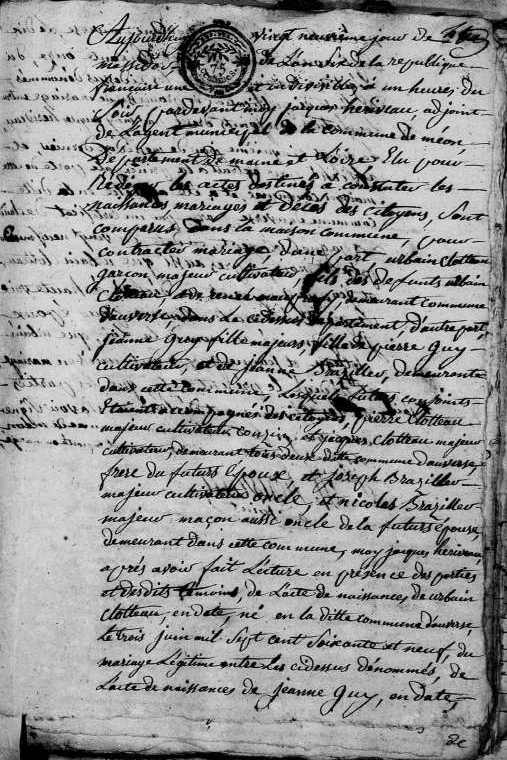 Aujourdhuy vingt neuvieme jour de
messidor de L'an Six de la republique
françoise une et indivisible, à un heures du
Soir, pardevant moy jacques heriveau, adjoint
de L'agent municipal de la commune de méon,
Departement de maine et Loire, Elu pour
Rediger les actes destinés à constater les
naissances mariages et Décès des citoyens, Sont
comparus, dans la maison commune, pour
contracter mariage, d'une part, urbain Clotteau
garçon majeur cultivateur fils des defunts urbain
Clotteau, et de demeurant commune
d'auverse, dans Le cidessus departement, d'autre part,
jeanne Guy fille majeure, fille de pierre Guy
cultivateur, et de jeanne Brazilles, demeurante
dans cette commune, Lesquels futurs conjoints
Etaient accompagnés des citoyens, pierre Clotteau
majeur cultivateur et jacques Clotteau majeur
cultivateur, demeurant tous deux ditte commune d'auverse,
frere du futurs Epoux, et joseph Brazilles
majeur cultivateur oncle, et nicolas Brazilles
majeur maçon aussi oncle de la futurs épouse,
demeurant dans cette commune, moy jacques heriveau,
après avoir fait Lecture en présence des parties
et desdits temoins, de L'acte de naissances, de urbain
Clotteau, en date, né en la ditte commune d'auverse,
Le trois juin mil Sept cent Soixante et neuf, du
mariage Légitime entre Les cidessus dénommés, de
L'acte de naissances de jeanne Guy, en date,
De